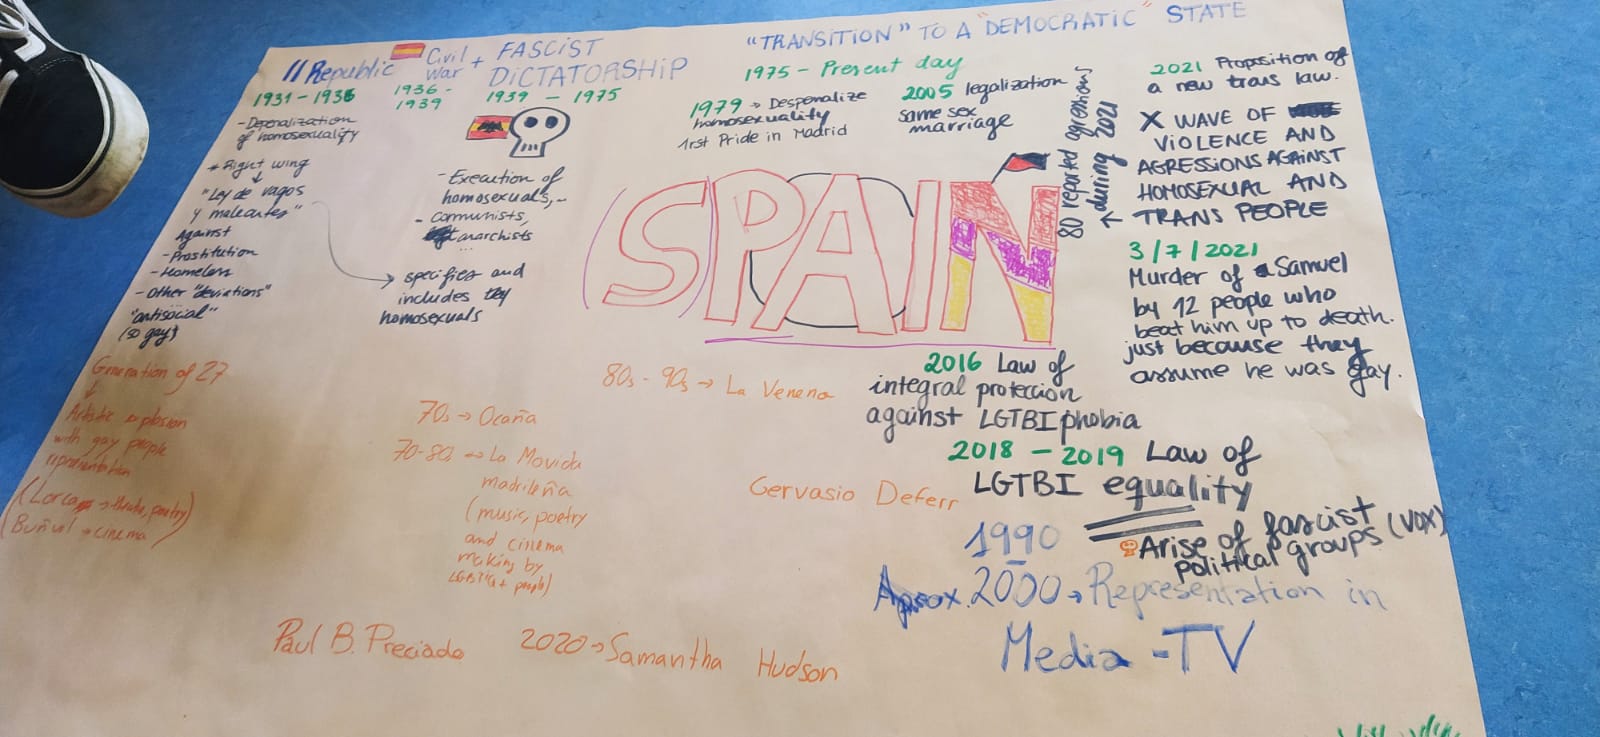 II Republic
1931 - 1936
- Depenalization
of homosexuality
+ Right wing
"Ley de vagos
y maleantes"
against
- Prostitution
- Homeless
- Other "deviations"
"antisocial"
(so gay)
Generation of 27
Artistic explosion
with gay people
representation
(Lorca → theatre, poetry)
(Buñuel → cinema)
Civil
War
1936 -
1939
+ FASCIST
DICTATORSHIP
1939 - 1975
- Execution of
homosexuals,
- communists,
anarchists
...
specifies and
includes
homosexuals
70s → Ocaña
70-80s → La Movida
madrileña
(music, poetry
and cinema
making by
people)
"TRANSITION" TO A "DEMOCRATIC" STATE
1975 - Present day
1979 → Despenalize
homosexuality
1rst Pride in Madrid
2005 legalization
same sex
marriage
80 reported agressions
← during 2021
2021 Proposition of
a new trans law.
X WAVE OF
VIOLENCE AND
AGRESSIONS AGAINST
HOMOSEXUAL AND
TRANS PEOPLE
3/7/2021
Murder of Samuel
by 12 people who
beat him up to death.
just because they
assume he was gay.
SPAIN
80s - 90s → La Veneno
2016 Law of
integral proteccion
against LGTBIphobia
2018 - 2019 Law of
LGTBI equality
Gervasio Deferr
Arise of fascist
political groups (VOX)
1990
Aprox. 2000 → Representation in
Media - TV
Paul B. Preciado
2020 → Samantha Hudson